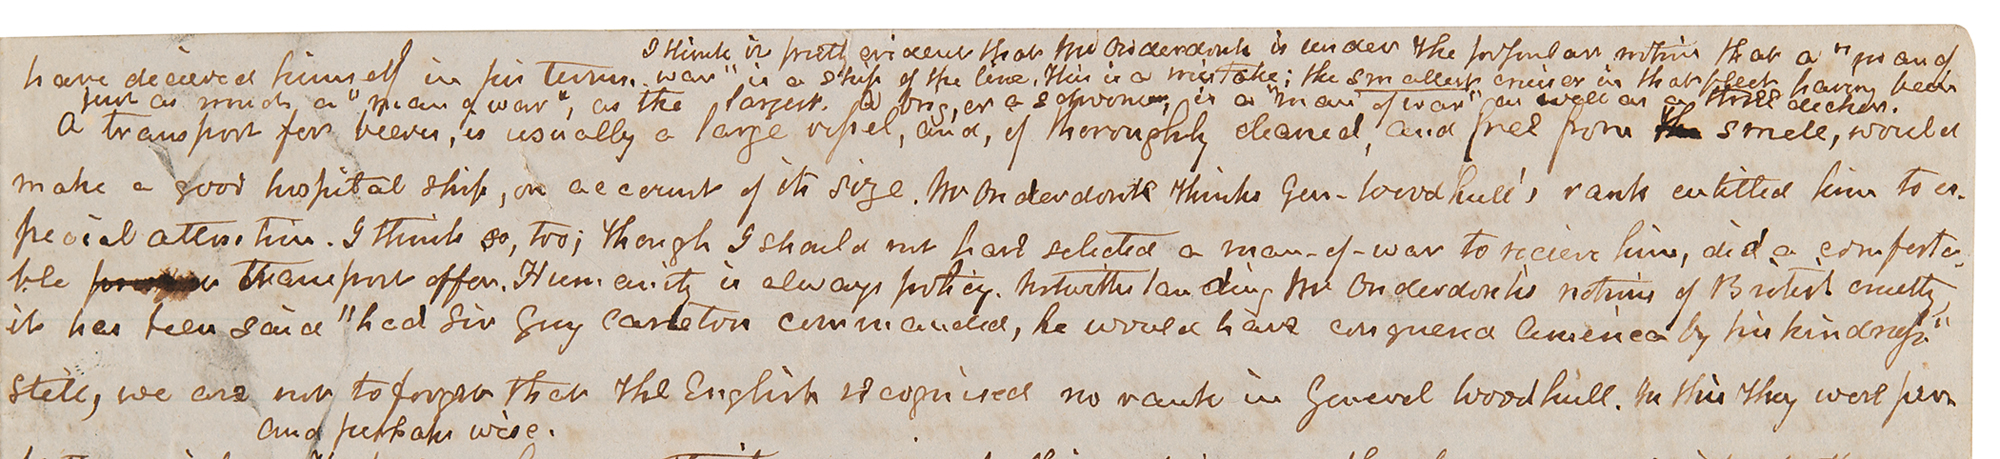 I think it pretty evident that Mr Onderdonk is under the popular notion that a "man of
have decieved himself in his terms. war" is a ship of the line. This is a mistake; the smallest cruiser in that fleet having been
just as much a "man of war", as the largest. A brig, or a schooner, is a "man of war" as well as a three decker.
A transport for beeves, is usually a large vessel, and, if thoroughly cleaned, and free from the smell, would
make a good hospital ship, on account of its size. Mr Onderdonk thinks Gen. Woodhull's rank entitled him to es-
pecial attention. I think so, too; though I should not have selected a man-of-war to recieve him, did a comforta-
ble transport offer. Humanity is always policy. Notwithstanding Mr Onderdonk's notions of British cruelty,
it has been said "had Sir Guy Carleton commanded, he would have conquered America by his kindness"
Still, we are not to forget that the English recognised no rank in General Woodhull. In this they were
and perhaps wise.